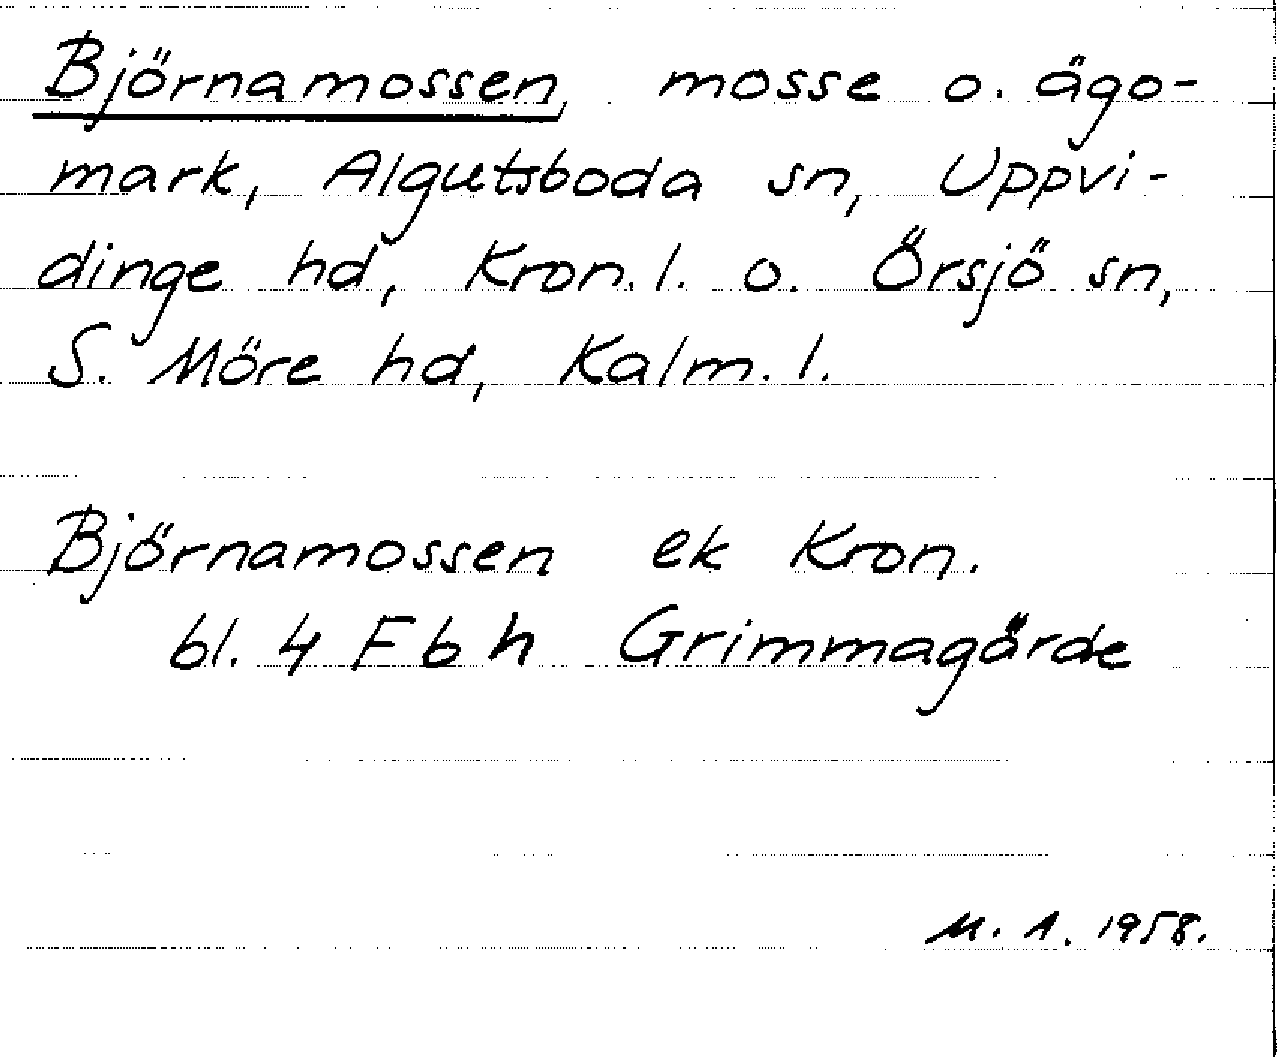 Björnamossen, mosse o. ägo-
mark, Algutsboda sn, Uppvi-
dinge hd, Kron. l. o. Örsjö sn,
S. Möre hd, Kalm. l.
Björnamossen ek Kron.
bl. 4 F b h Grimmagärde
M. A. 1958.